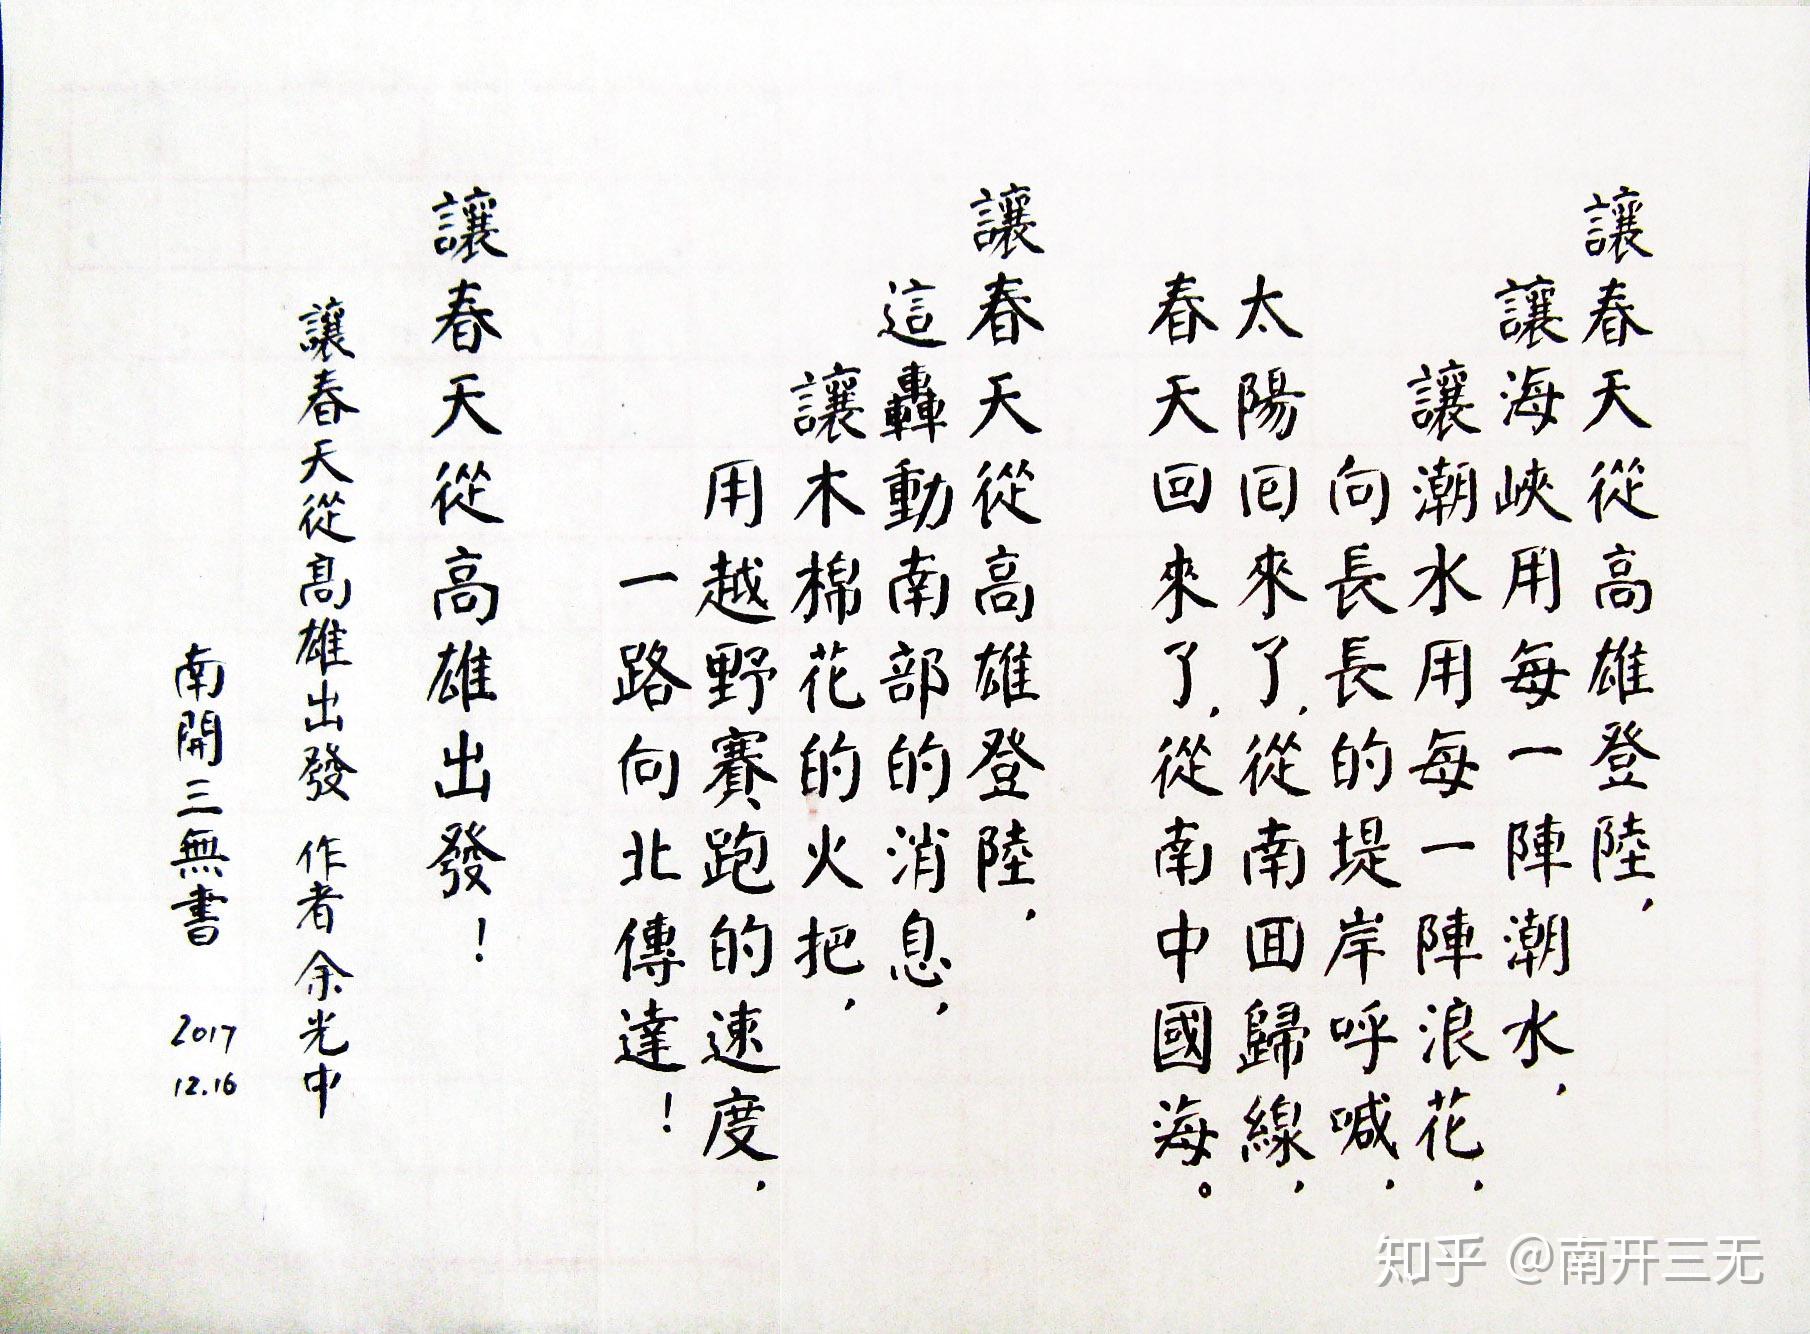 讓春天從高雄登陸，
讓海峽用每一陣潮水，
讓潮水用每一陣浪花，
向長長的堤岸呼喊，
太陽回來了，從南回歸線，
春天回來了，從南中國海。
讓春天從高雄登陸，
這轟動南部的消息，
讓木棉花的火把，
用越野賽跑的速度，
一路向北傳達！
讓春天從高雄出發！
讓春天從高雄出發 作者余光中
南開三無書 2017 12.16
知乎 @南开三无